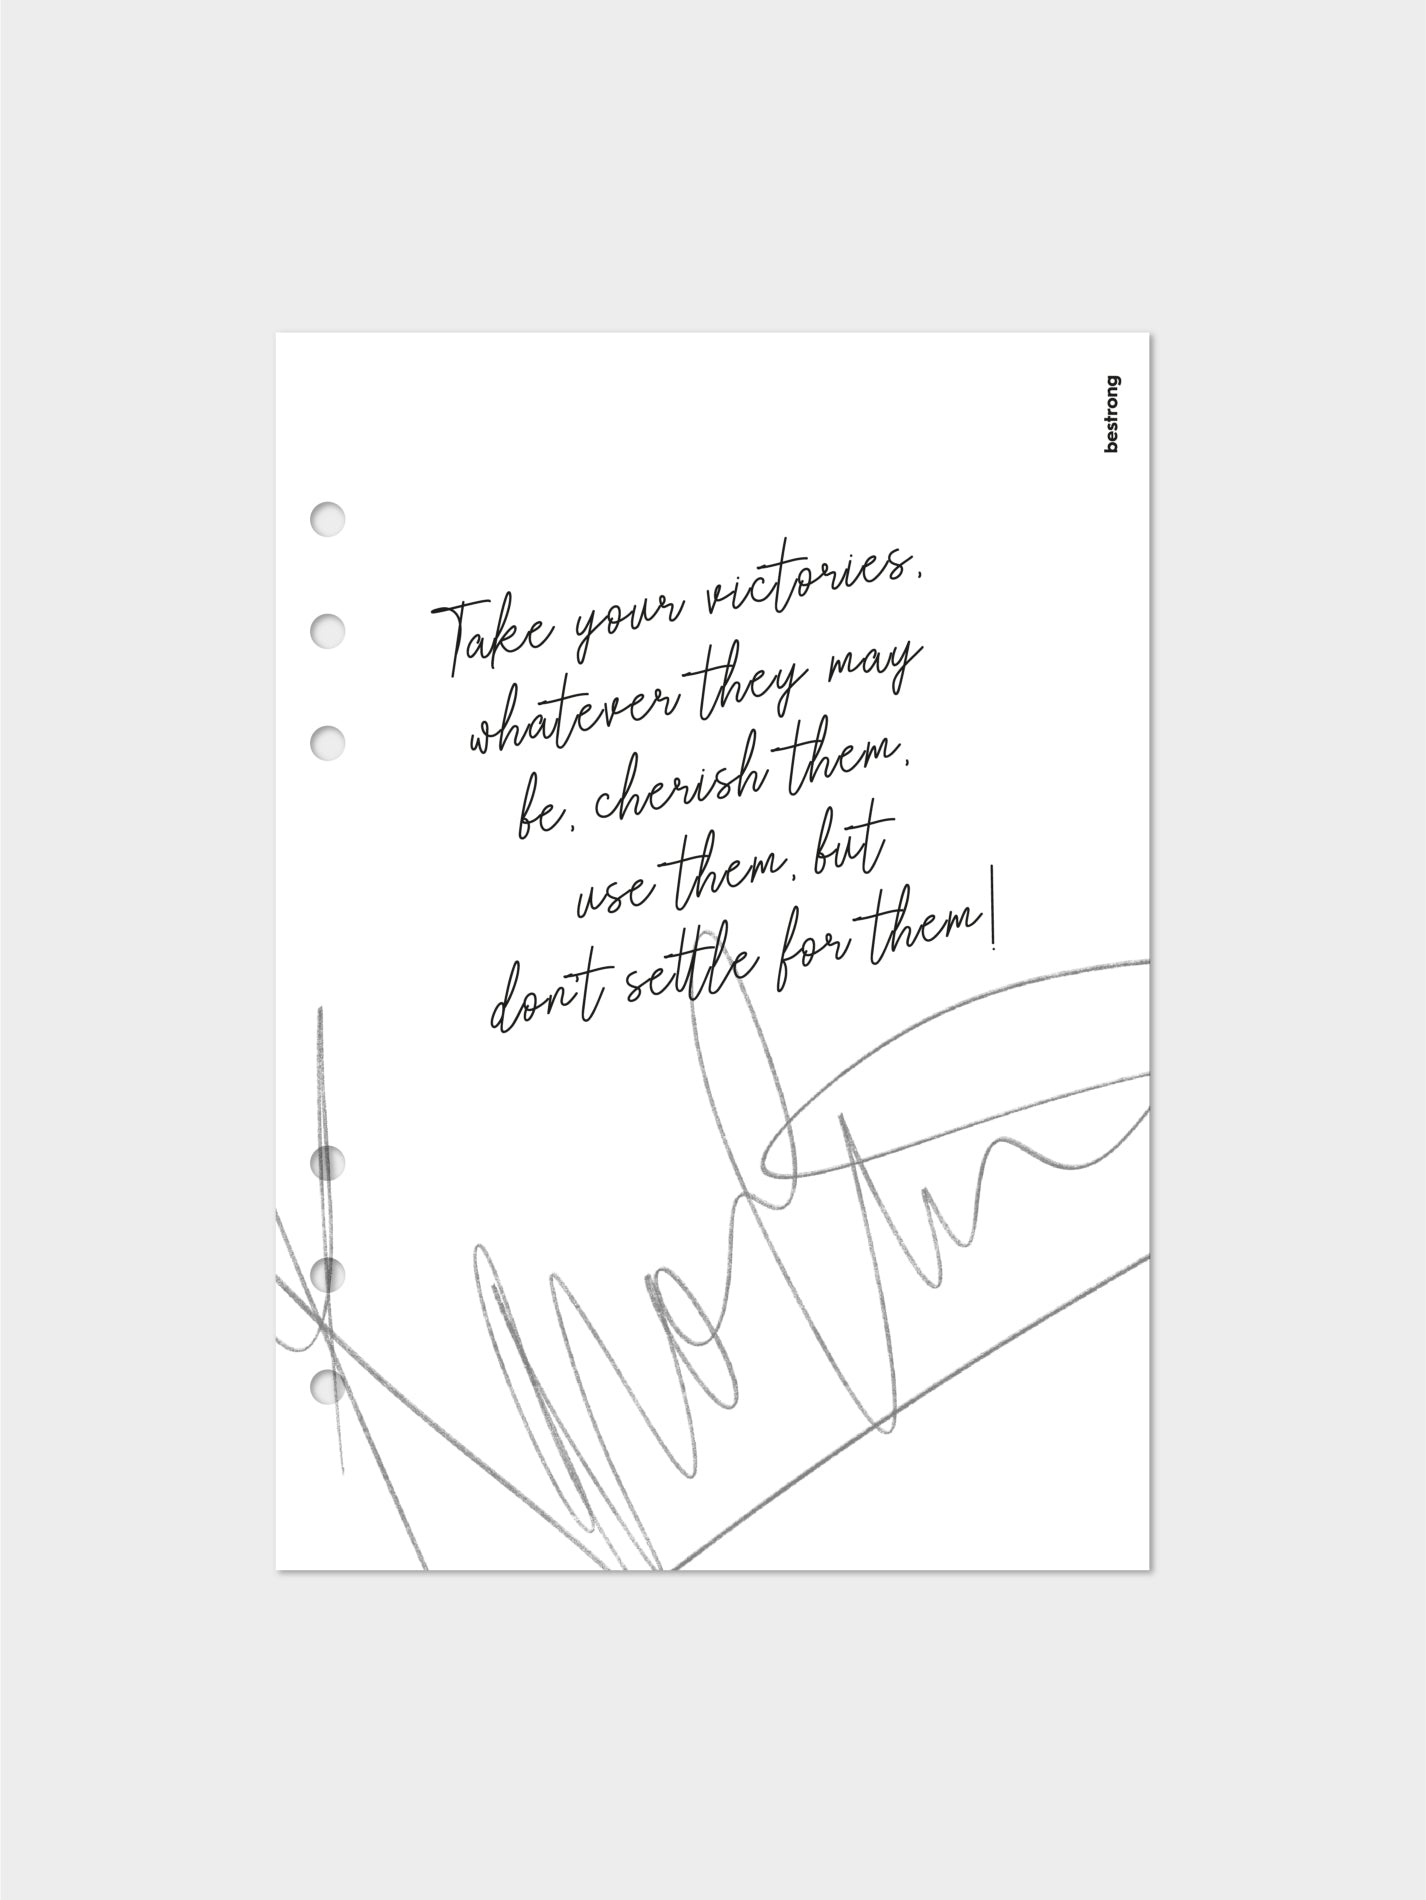 bestrong
Take your victories,
whatever they may
be, cherish them,
use them, but
don't settle for them!